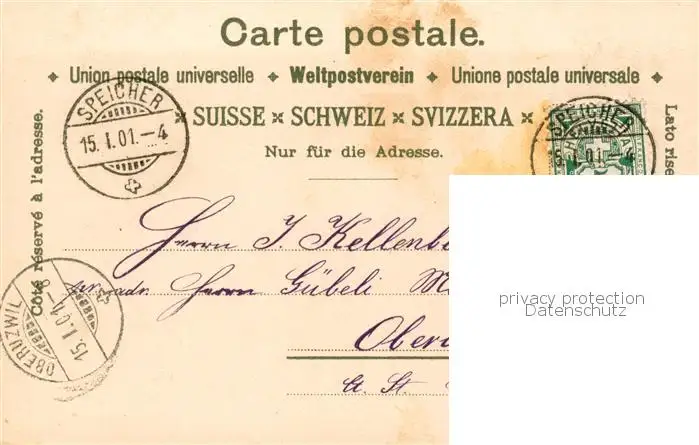 Carte postale.
Union postale universelle Weltpostverein Unione postale universale
SUISSE × SCHWEIZ × SVIZZERA
Nur für die Adresse.
Côté réservé à l'adresse.
Lato rise
SPEICHER
15. I. 01. – 4
SPEICHER
15. I. 01. – 4
OBERUZWIL
15. I. 01 – 8
Herrn J. Kellenb
pr. adr. Herrn Gübeli M
Ober
Ct. St.
privacy protection
Datenschutz